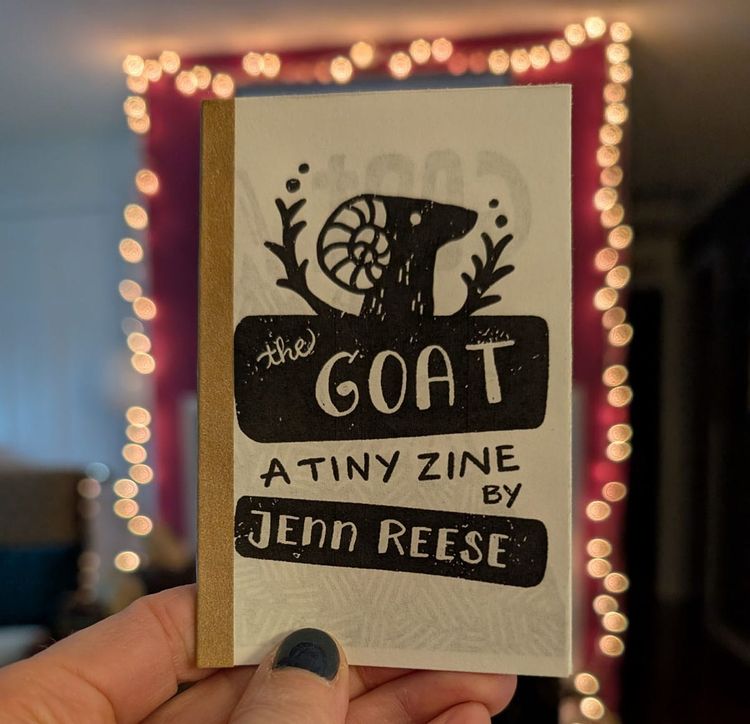 the
GOAT
A TINY ZINE
BY
JENN REESE